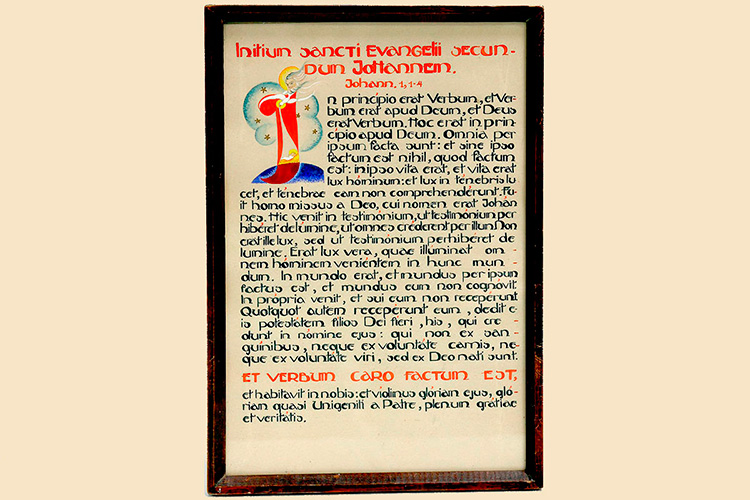 Initium sancti Evangelii secun-
dum Johannem.
Johann. 1, 1-4
In principio erat Verbum, et Ver-
bum erat apud Deum, et Deus
erat Verbum. Hoc erat in prin-
cipio apud Deum. Omnia per
ipsum facta sunt: et sine ipso
factum est nihil, quod factum
est: in ipso vita erat, et vita erat
lux hominum: et lux in tenebris lu
cet, et ténebrae eam non comprehendérunt. Fu
it homo missus a Deo, cui nomen erat Johán
nes. Hic venit in testimónium, ut testimónium per
hibéret de lúmine, ut omnes créderent per illum. Non
erat ille lux, sed ut testimónium perhibéret de
lumine. Erat lux vera, quae illuminat om -
nem hóminem veniéntem in hunc mun -
dum. In mundo erat, et mundus per ipsum
factus est, et mundus eum non cognóvit
In própria venit, et sui eum non recepérunt
Quotquot autem recepérunt eum, dedit e-
is potestatem filios Dei fieri, his, qui cre -
dunt in nómine ejus: qui non ex san -
guinibus, neque ex voluntáte carnis, ne-
que ex voluntáte viri, sed ex Deo nati sunt.
ET VERBUM CARO FACTUM EST,
et habitavit in nobis: et vidimus glóriam ejus, gló-
riam quasi Unigeniti a Patre, plenum gratiae
et veritátis.